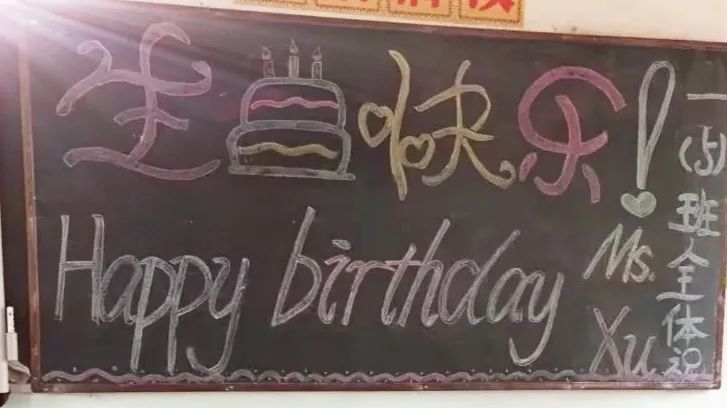 生日快乐!
Happy birthday
Ms.
Xu
一(5)班全体祝